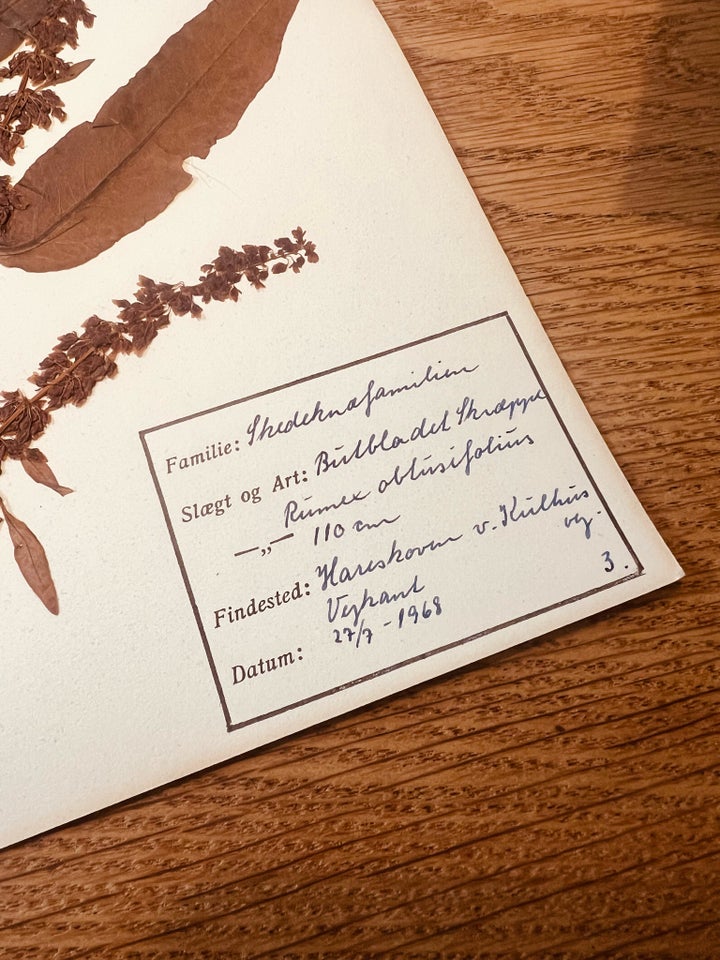 Familie: Skedeknæfamilien
Slægt og Art: Butbladet Skræppe
—„— Rumex obtusifolius
110 cm
Findested: Hareskoven v. Kulhus
vej.
Vejkant
3.
Datum: 27/7 - 1968